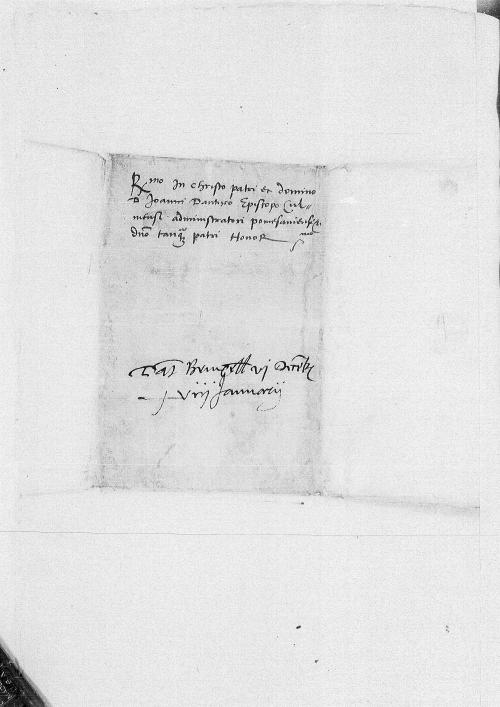 Rmo In Christo patri et domino
D Joanni Dantisco Episcopo Cul-
mensi administratori pomesaniensi
dno tanq patri Honor mo
Bruxell vj Decēb
viij Januarij